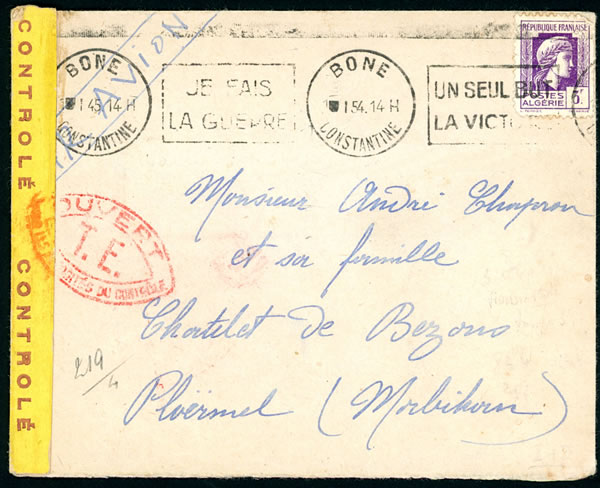 CONTROLÉ CONTROLÉ
PAR AVION
BONE
1 45. 14 H
CONSTANTINE
JE FAIS
LA GUERRE
BONE
1 54. 14 H
CONSTANTINE
UN SEUL BUT
LA VICTO
RÉPUBLIQUE FRANÇAISE
POSTES
ALGÉRIE
5F
OUVERT
T. E.
DU CONTRÔLE
Monsieur André Chapron
et sa famille
Chatelet de Bezons
Ploërmel (Morbihan)
219/4